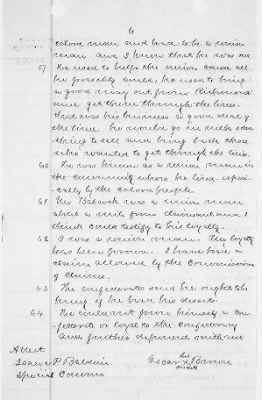 6
colored man and born to be a union
man. and I know that he was one
57 He used to help the union cause all
he possibly could, he used to bring
a good many out from Richmond
and get them through the lines.
that was his business a good deal of
the time. He would go in with some
thing to sell and bring back those
who wanted to get through the lines.
60 He was known as a union man in
the community where he lived. especi
ally by the colored people.
61 Mr Babcock was a union man
about a mile from claimant and I
think could testify to his loyalty.
62 I was a union man. My loyalty
has been proven. I have had a
claim allowed by the Commissioners
of Claims.
63 The confederates said he ought to be
hung if he had his deserts.
64 He could not prove himself a con
federate or loyal to the Confederacy
And further deponent saith not
his
Attest Oscar X Brown
mark
Isaac P Baldwin
Special Comm